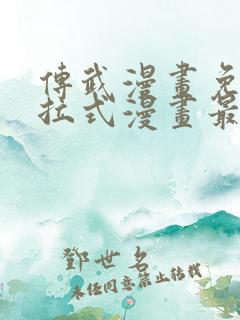 傳武漫畫免
拉式漫畫最
鄧世名
未经同意禁止转载